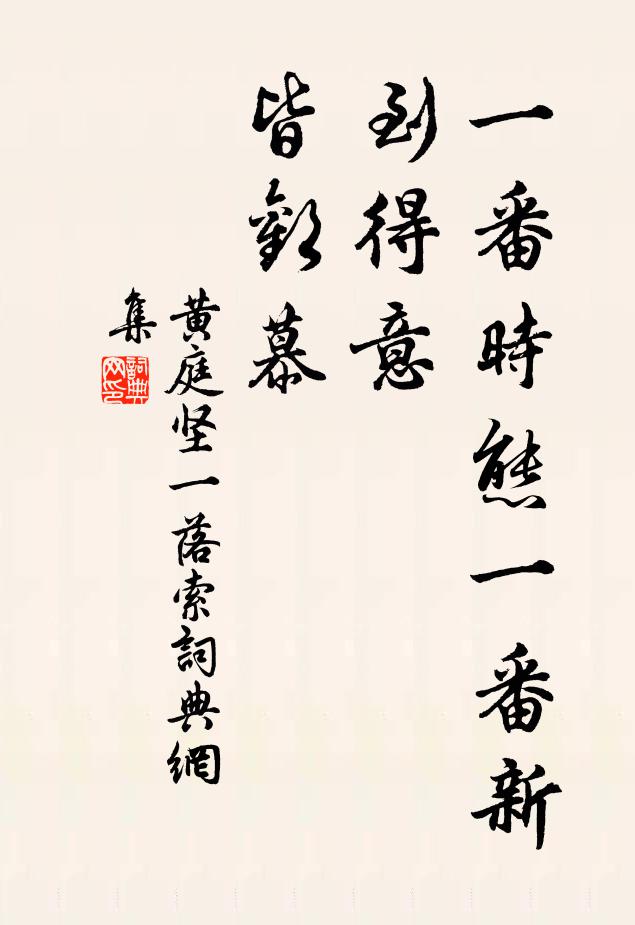 一番時態一番新
到得意
皆歡慕
黄庭坚一落索詞典網
集
詞典
网印